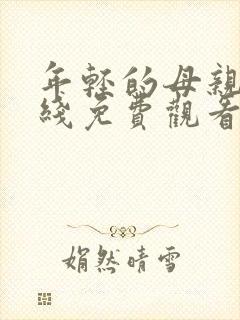 年轻的母親
綫免費觀看
娟然晴雪